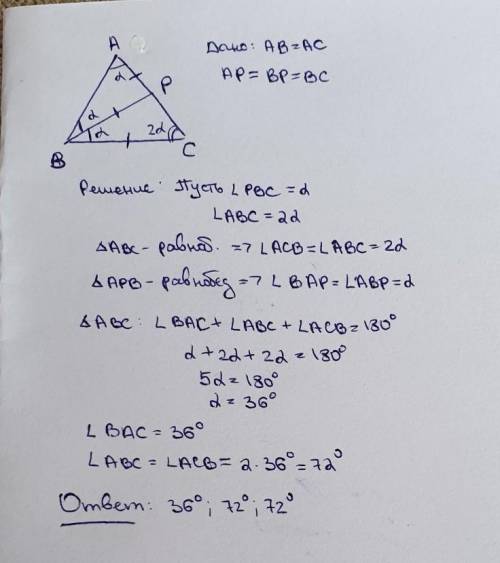 A
Дано: AB=AC
α
P
AP=BP=BC
α
α
2α
B
C
Решение: Пусть ∠PBC=α
∠ABC=2α
△ABC-равноб. => ∠ACB=∠ABC=2α
△APB-равнобед => ∠BAP=∠ABP=α
△ABC: ∠BAC+∠ABC+∠ACB=180°
α+2α+2α=180°
5α=180°
α=36°
∠BAC=36°
∠ABC=∠ACB=2·36°=72°
Ответ: 36°; 72°; 72°